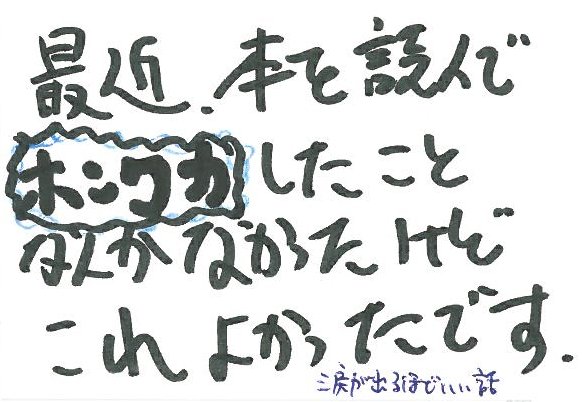 最近、本を読んで
ホンワカしたこと
なんかなかったけど
これよかったです.
涙が出るほどいい話